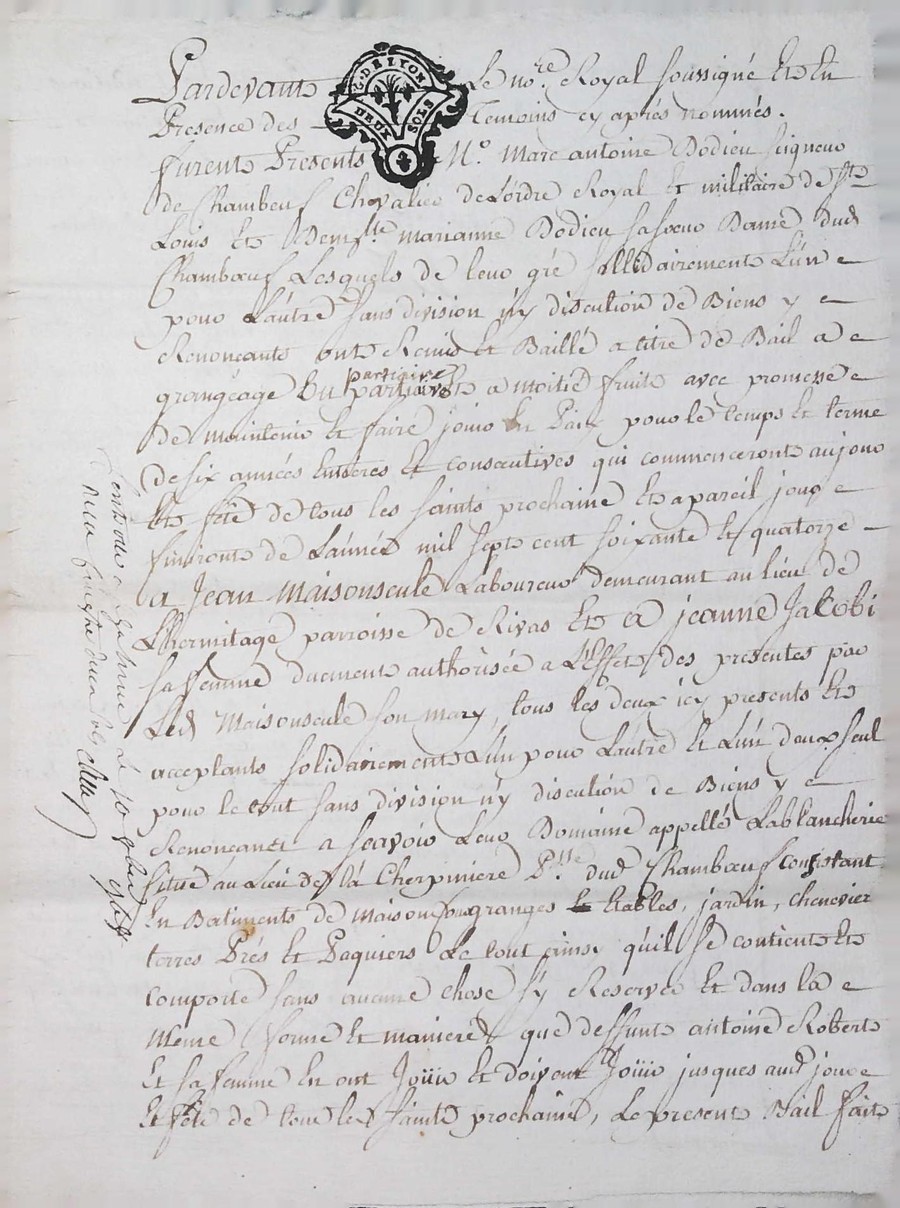 Pardevant Le no.re Royal soussigné Et En
G. DE LYON
DEUX SOLS
Presence des Temoins cy aprés nommés.
furent Presents M.e Marc antoine Dodieu seigneur
de Chambeuf Chevalier de L'ordre Royal et militaire de St
Louis Et Demlle marianne Dodieu sa soeur Dame dud
Chambœuf Lesquels de leur gré sollidairement L'un
pour L'autre sans division n'y discution de Biens y
Renonçants ont Remis et Baillé a titre de Bail a
grangeage Ou partiaire a moitié fruits avec promesse
partiaire
de maintenir et faire jouir En Paix pour le temps et terme
de six années Entieres et consecutives qui commenceront au jour
Et fête de tous les saints prochaine Et a pareil jour
finiront de L'année mil sept cent soixante et quatorze
a Jean Maisonseule Laboureur demeurant au lieu de
L'hermitage parroisse de Rivas Et a jeanne Jacobi
sa femme duement authorisée a L'Effet des presentes par
Led Maisonseule son mary, tous les deux icy presents Et
acceptants solidairement L'un pour L'autre et L'un deux seul
pour le tout sans division n'y discution de Biens y
Renonçant a sçavoir Leur Domaine appellé Lablancherie
situé au Lieu de la Cherpiniere P.sse dud Chambœuf consistant
En Batiments de Maison granges et Etables, jardin, chenevier
terres Prés et Paquiers Le tout ainsy qu'il se contient Et
comporte sans aucune chose s'y Reserver Et dans la
Même forme et maniere que deffunt antoine Robert
Et sa femme En ont Joüir et doivent Joüir jusques aud jour
Et fête de tous les saints prochaine, Le present Bail fait